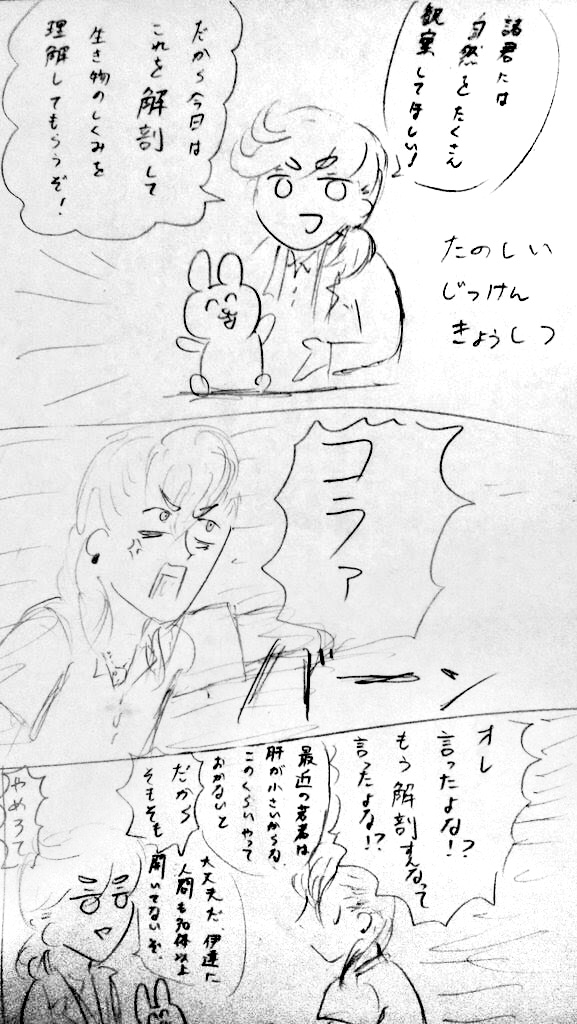 諸君には
自然をたくさん
観察してほしい!
だから今日は
これを解剖して
生き物のしくみを
理解してもらうぞ!
たのしい
じっけん
きょうしつ
コラァ
バーン
オレ
言ったよな!?
もう解剖すんなって
言ったよな!?
最近の若者は
肝が小さいからな、
このくらいやって
おかないと
だから
そもそも
大丈夫だ、伊達に
人間も30体以上
開いてないぞ、
やめろて